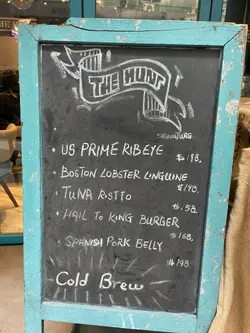 THE HUNT
US PRIME RIBEYE
$198.
BOSTON LOBSTER LINGUINE
$198.
TUNA RISTTO
$158.
HAIL TO KING BURGER
$168.
SPANISH PORK BELLY
$198
Cold Brew